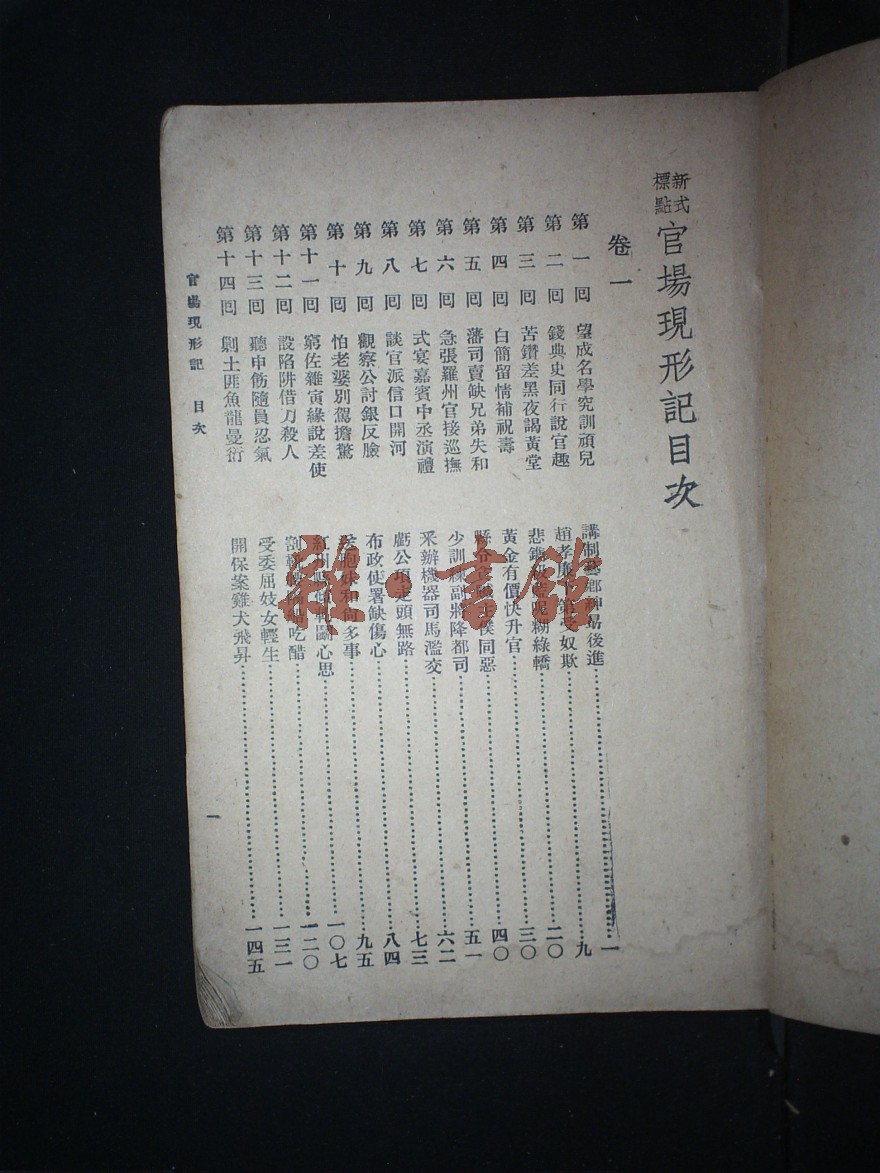 新式標點 官場現形記目次
卷一
第一回 望成名學究訓頑兒 講制藝鄉紳勗後進 一
第二回 錢典史同行說官趣 趙孝廉下第受奴欺 九
第三回 苦鑽差黑夜謁黃堂 悲鐫級藍呢糊綠轎 二〇
第四回 白簡留情補祝壽 黃金有價快升官 三〇
第五回 藩司賣缺兄弟失和 縣令 同惡 四〇
第六回 急張羅州官接巡撫 少訓練副將降都司 五一
第七回 式宴嘉賓中丞演禮 采辦機器司馬濫交 六二
第八回 談官派信口開河 虧公項走頭無路 七三
第九回 觀察公討銀反臉 布政使署缺傷心 八四
第十回 怕老婆別駕擔驚 胞妹和尚多事 九五
第十一回 窮佐雜寅緣說差使 紅州縣 鬭心思 一〇七
第十二回 設陷阱借刀殺人 吃醋 一二〇
第十三回 聽申飭隨員忍氣 受委屈妓女輕生 一三一
第十四回 剿土匪魚龍曼衍 開保案雞犬飛昇 一四五
官場現形記 目次
一
雜·書館